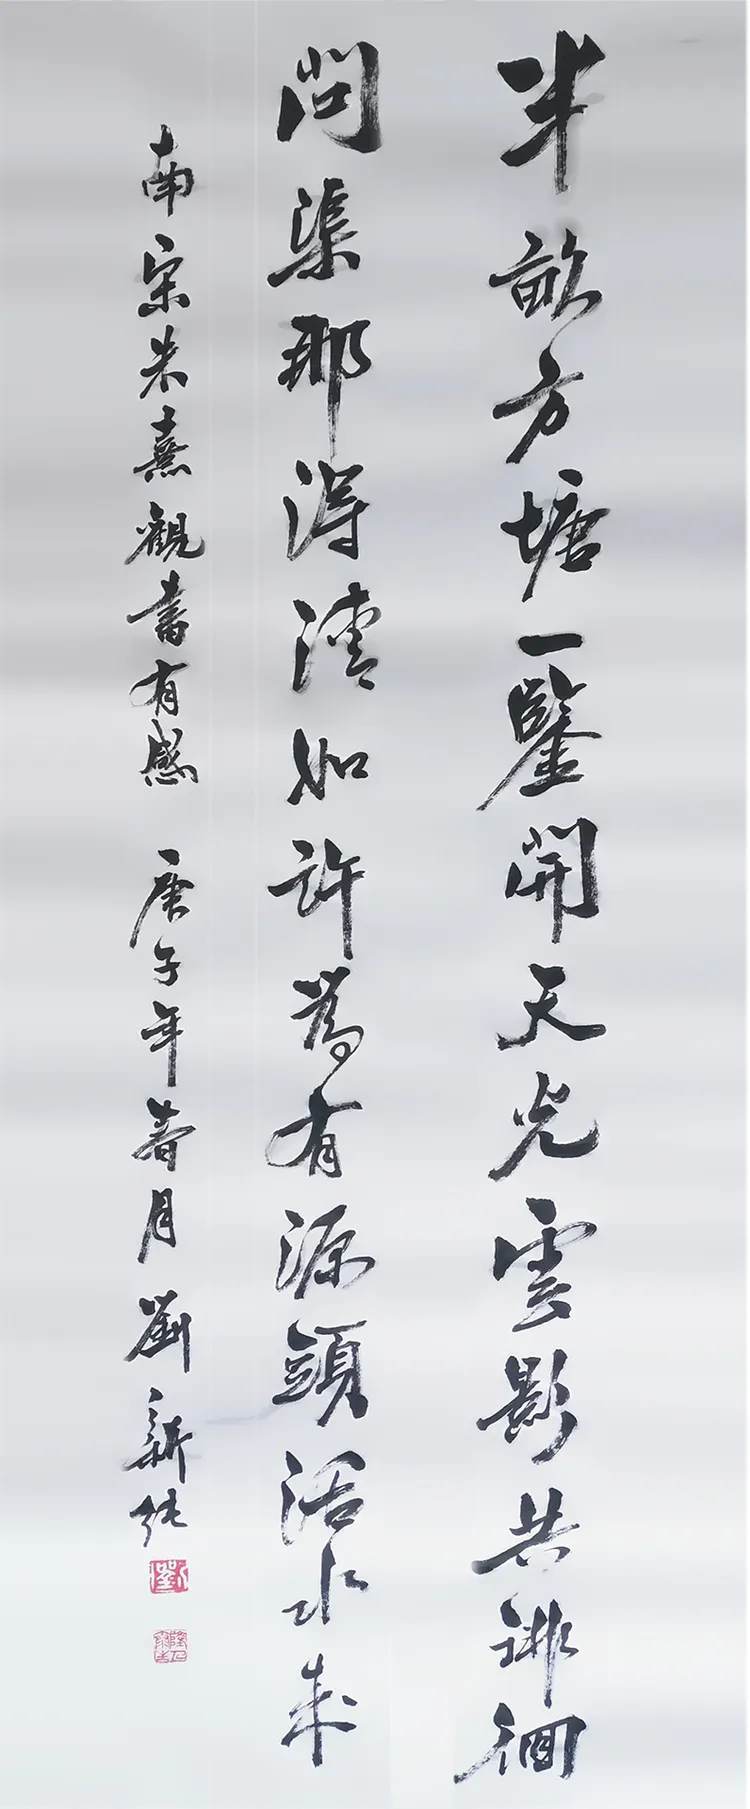 半畝方塘一鑒開天光雲影共徘徊
問渠那得清如許為有源頭活水來
南宋朱熹觀書有感 庚子年春月劉新純